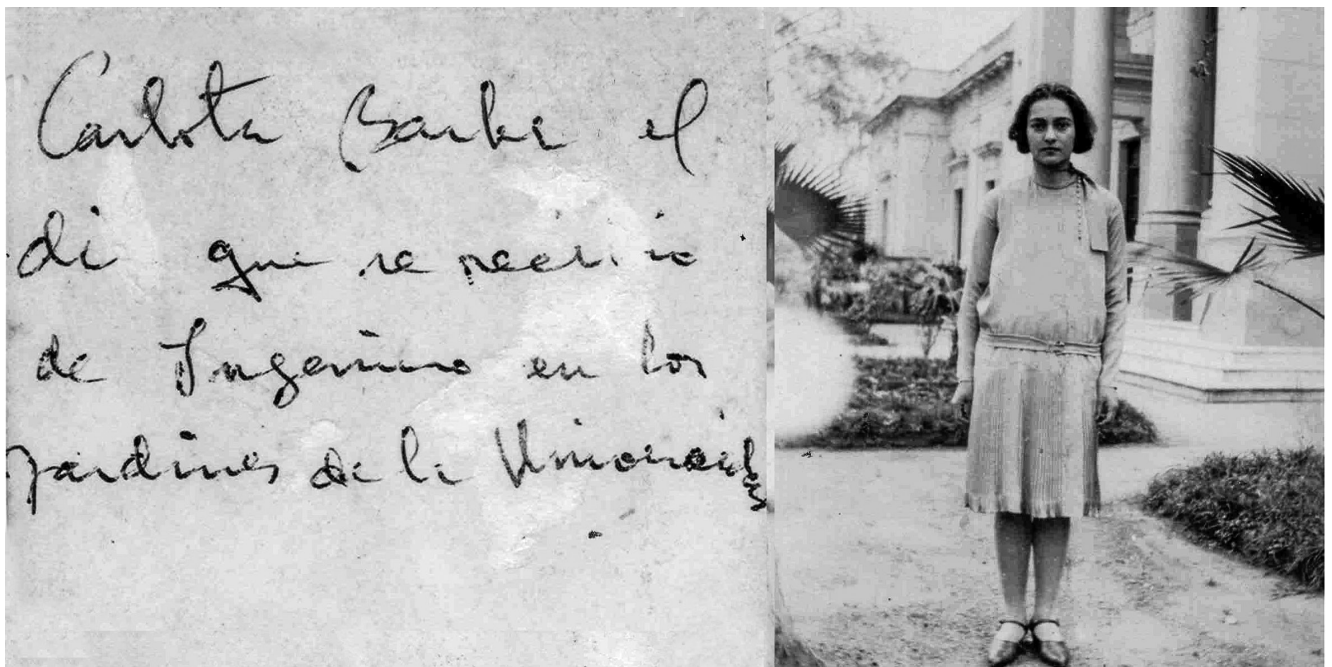 Carlota el
dia que se recibio
de Ingeniero en los
jardines de la Universidad